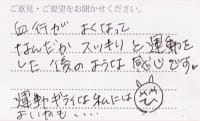 ご意見・ご要望をお聞かせください。
血行が よくなって
なんだか スッキリ と 運動を
した 後のような 感じです♥
運動ギライな私には
よいかも・・・・